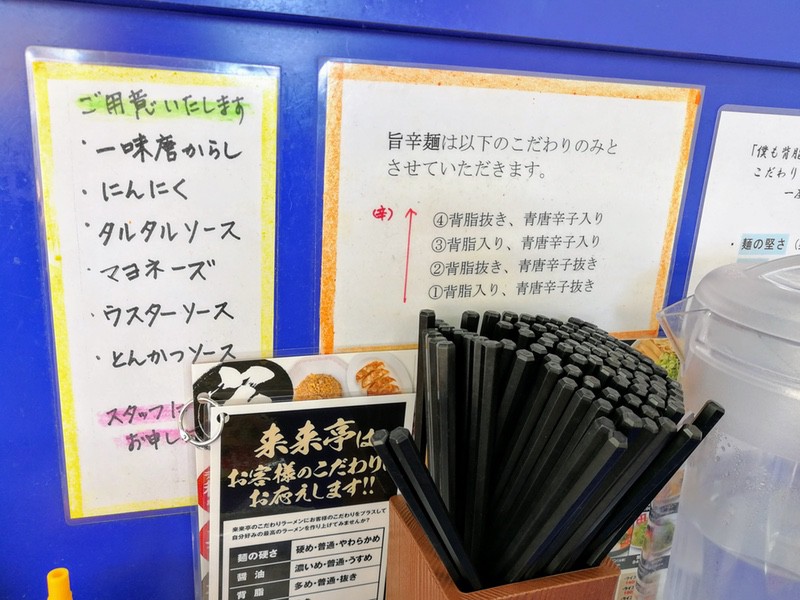 ご用意いたします
・一味唐からし
・にんにく
・タルタルソース
・マヨネーズ
・ウスターソース
・とんかつソース
スタッフに
お申し
旨辛麺は以下のこだわりのみと
させていただきます。
(辛)
④背脂抜き、青唐辛子入り
③背脂入り、青唐辛子入り
②背脂抜き、青唐辛子抜き
①背脂入り、青唐辛子抜き
「僕も背脂
こだわり
・麺の堅さ
来来亭は
お客様のこだわり
お応えします!!
来来亭のこだわりラーメンにお客様のこだわりをプラスして
自分好みの最高のラーメンを作り上げてみませんか?
麺の硬さ 硬め・普通・やわらかめ
醤油 濃いめ・普通・うすめ
背脂 多め・普通・抜き